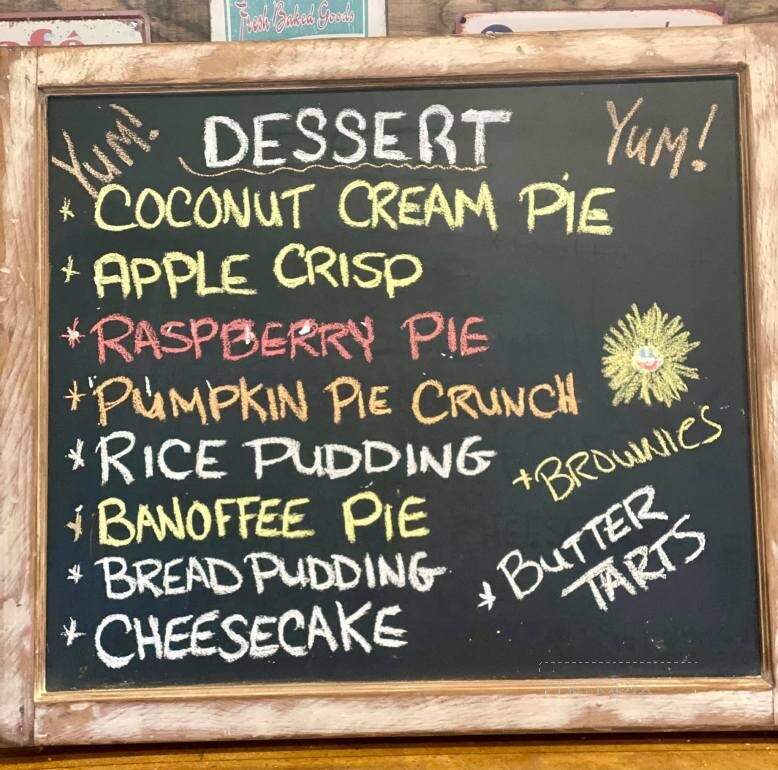 Fresh Baked Goods
afé
Yum! DESSERT Yum!
* COCONUT CREAM PIE
* APPLE CRISP
* RASPBERRY PIE
* PUMPKIN PIE CRUNCH
* RICE PUDDING
+ BROWNIES
* BANOFFEE PIE
* BREAD PUDDING
* BUTTER
TARTS
* CHEESECAKE